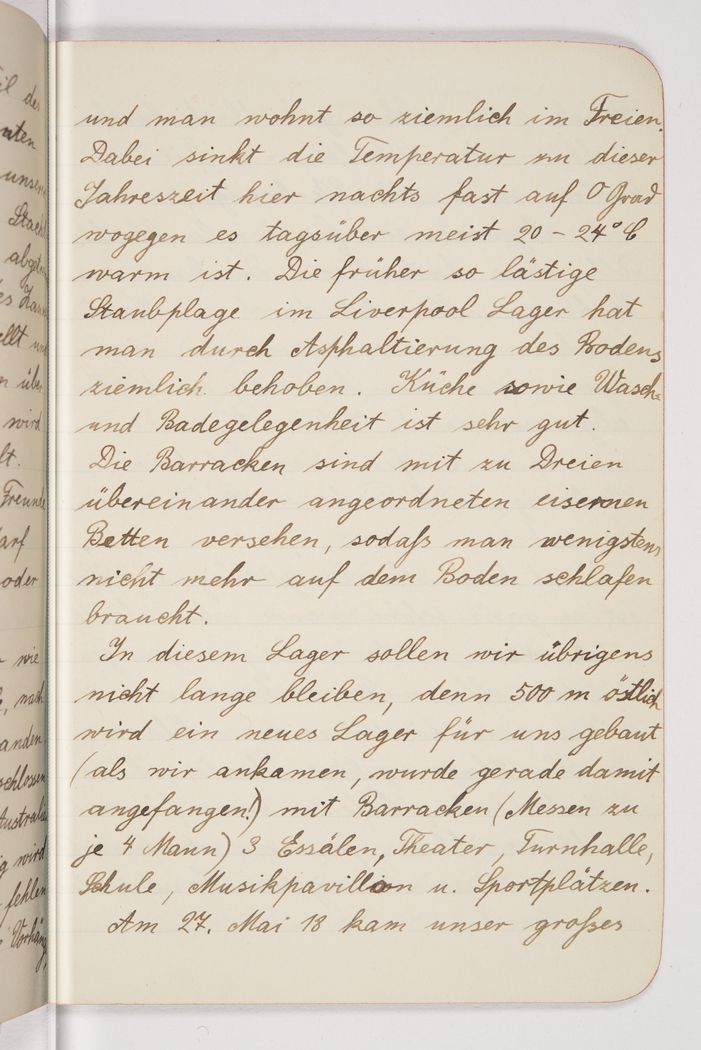 und man wohnt so ziemlich im Freien.
Dabei sinkt die Temperatur zu dieser
Jahreszeit hier nachts fast auf 0 Grad
wogegen es tagsüber meist 20 – 24° C
warm ist. Die früher so lästige
Staubplage im Liverpool Lager hat
man durch Asphaltierung des Bodens
ziemlich behoben. Küche sowie Wasch-
und Badegelegenheit ist sehr gut.
Die Barracken sind mit zu Dreien
übereinander angeordneten eisernen
Betten versehen, sodaß man wenigstens
nicht mehr auf dem Boden schlafen
braucht.
In diesem Lager sollen wir übrigens
nicht lange bleiben, denn 500 m östlich
wird ein neues Lager für uns gebaut
(als wir ankamen, wurde gerade damit
angefangen!) mit Barracken (Messen zu
je 4 Mann) 3 Essälen, Theater, Turnhalle,
Schule, Musikpavillion u. Sportplätzen.
Am 27. Mai 18 kam unser großes